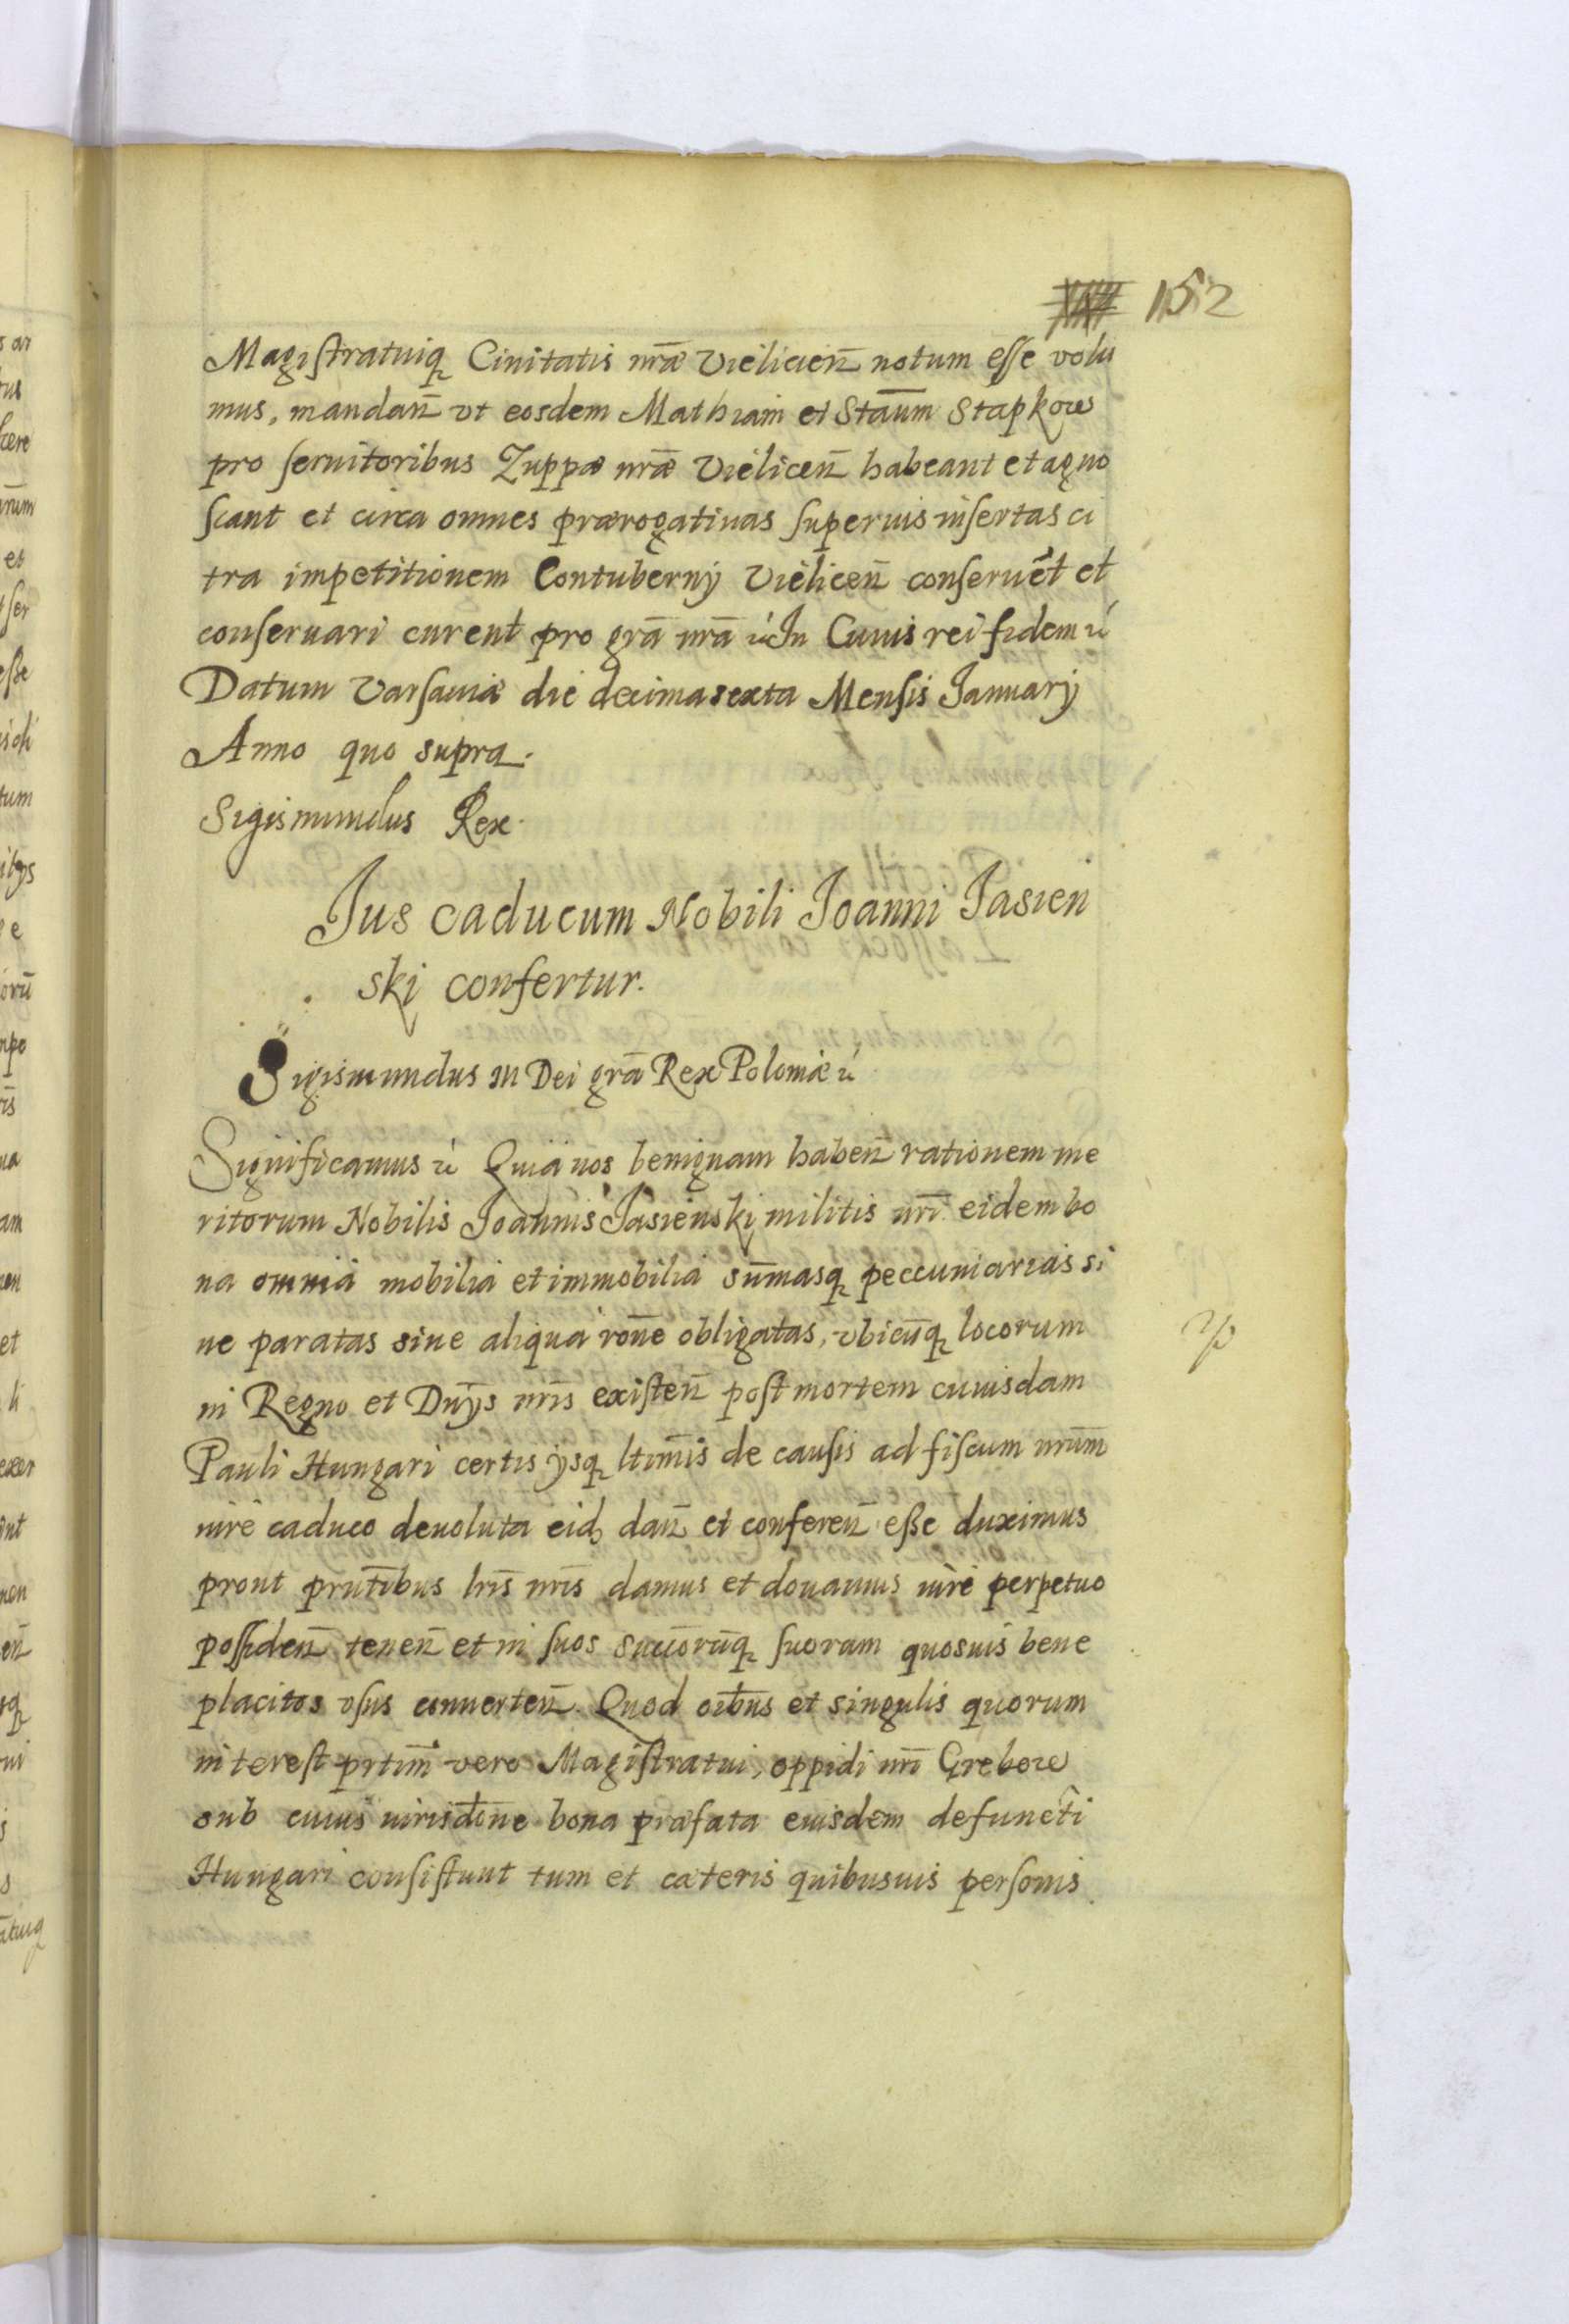 152
Magistratuiq Ciuitatis nræ Vielicien notum esse volu
mus, mandan vt eosdem Mathiam et Staum Stapkow
pro seruitoribus Zuppæ nræ Vielicen habeant et agno
scant et circa omnes prærogatiuas superius insertas ci
tra impetitionem Contubernij Vielicen conseruēt et
conseruari curent pro grā nrā &c In Cuius rei fidem &c
Datum Varsauiæ die decima sexta Mensis Januarij
Anno quo supra.
Sigismundus Rex.
Jus caducum Nobili Joanni Jasien
ski confertur.
Sigismundus III Dei grā Rex Poloniæ &c
Significamus &c Quia nos benignam haben̄ rationem me
ritorum Nobilis Joannis Jasienski militis nrī eidem bo
na omnia mobilia et immobilia sum̄masq peccuniarias si
ue paratas siue aliqua rōne obligatas, vbicūq locorum
in Regno et Dnijs nrīs existen̄ post mortem cuiusdam
Pauli Hungari certis ijsq ltimīs de causis ad fiscum nrūm
iure caduco deuoluta eidȝ dan̄ et conferen̄ esse duximus
prout prntībus lrīs nrīs damus et donamus iure perpetuo
possiden̄ tenen̄ et in suos succorūq suoram quosuis bene
placitos vsus conuerten̄. Quod oībus et singulis quorum
interest prtīm vero Magistratui, oppidi nrī Grebow
sub cuius iurisdōne bona præfata euisdem defuncti
Hungari consistunt tum et cæteris quibusuis personis